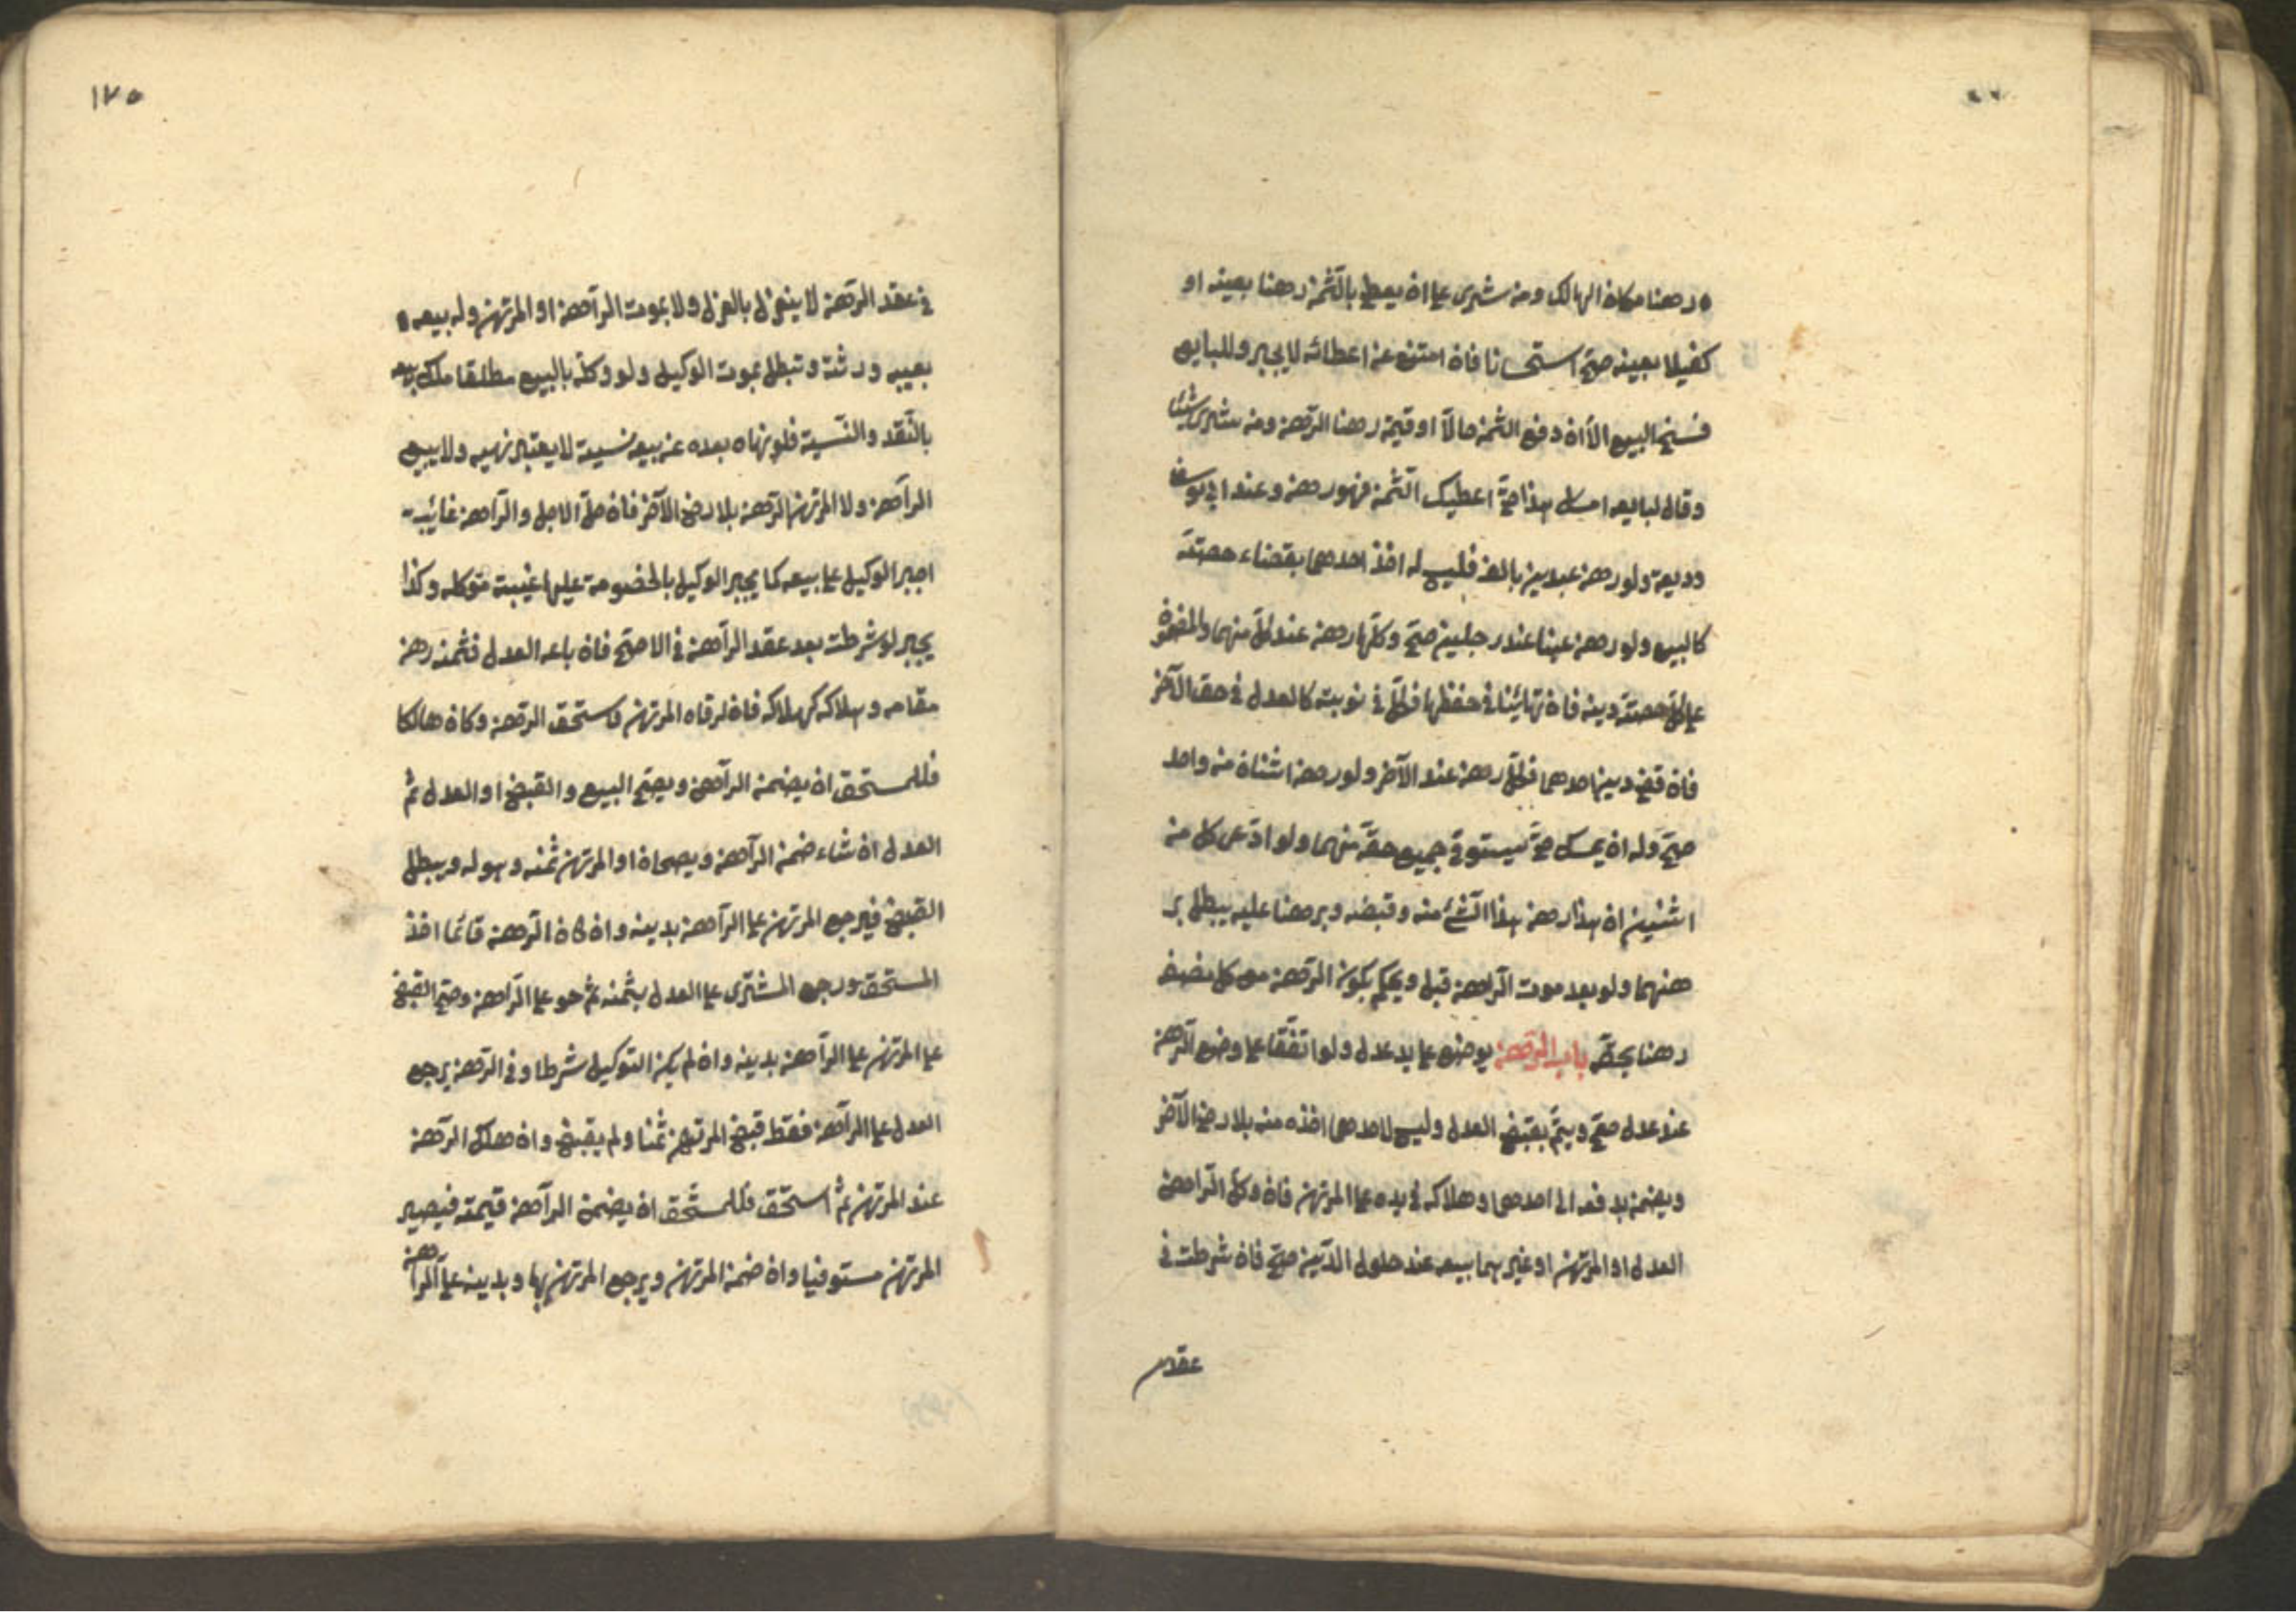 رهنا مكان الهالك ومن شرى على ان يعطى بالثمن رهنا بعينه او
كفيلا بعينه صح استحسانا فان امتنع عن اعطائه لا يجبر وللبايع
فسخ البيع الا ان دفع الثمن حالا او قيمة رهنا الرهن ومن شرى شيئا
وقال لبايعه امسك هذا حتى اعطيك الثمن فهو رهن وعند ابي يوسف
وديعة ولو رهن عبدين بالف فليس له اخذ احدهما بقضاء حصته
كالبيع ولو رهن عينا عند رجلين صح وكلها رهن عند كل منهما والمضمون
على كل حصته دينه فان تهائيئا في حفظها فكل في نوبته كالعدل في حق الآخر
فان قضى دين احدهما فكل رهن عند الآخر ولو رهن اثنان من واحد
صح وله ان يمسك حتى يستوفي جميع حقه منهما ولو ادعى كل من
اثنين ان هذا رهن هذا الشئ منه وقبضه وبرهنا عليه يبطل بر
هنهما ولو بعد موت الراهن قبل ويحكم بكون الرهن مع كل نصف
رهنا بحقه باب الرهن يوضع على يد عدل ولو اتفقا على وضع الرهن
عند عدل صح ويتم بقبض العدل وليس لاحدهما اخذه منه بلا رضى الآخر
ويضمن بدفعه الى احدهما وهلاكه في يده على المرتهن فان وكل الراهن
العدل او المرتهن او غيرهما ببيعه عند حلول الدين صح فان شرطت في
عقد
١٧٥
في عقد الرهن لا ينعزل بالعزل ولا بموت الراهن او المرتهن وله بيعه
بغيبه ورثته وتبطل بموت الوكيل ولو وكله بالبيع مطلقا ملك بيعه
بالنقد والنسية فلو نهاه بعده عن بيعه نسية لا يعتبر نهيه ولا يبيع
الراهن ولا المرتهن الرهن بلا رضى الآخر فان حل الاجل والراهن غائب
اجبر الوكيل على بيعه كما يجبر الوكيل بالخصومة عليها غيبت موكله وكذا
يجبر لو شرطت بعد عقد الراهن في الاصح فان باعه العدل فثمنه رهن
مقامه وهلاكه كهلاكه فان اوفاه المرتهن فاستحق الرهن وكان هالكا
فللمستحق ان يضمن الراهن ويصح البيع والقبض او العدل ثم
العدل ان شاء ضمن الراهن ويصحان او المرتهن ثمنه وهو له ويبطل
القبض فيرجع المرتهن على الراهن بدينه وان كان الرهن قائما اخذ
المستحق ورجع المشترى على العدل بثمنه ثم هو على الراهن وصح القبض
على المرتهن على الراهن بدينه وان لم يكن التوكيل شرطا وفي الرهن يرجع
العدل على الراهن فقط قبض المرتهن ثمنا ولم يقبض وان هلك الرهن
عند المرتهن ثم استحق فللمستحق ان يضمن الراهن قيمته فيصير
المرتهن مستوفيا وان ضمن المرتهن ويرجع المرتهن بها وبدينه على الراهن